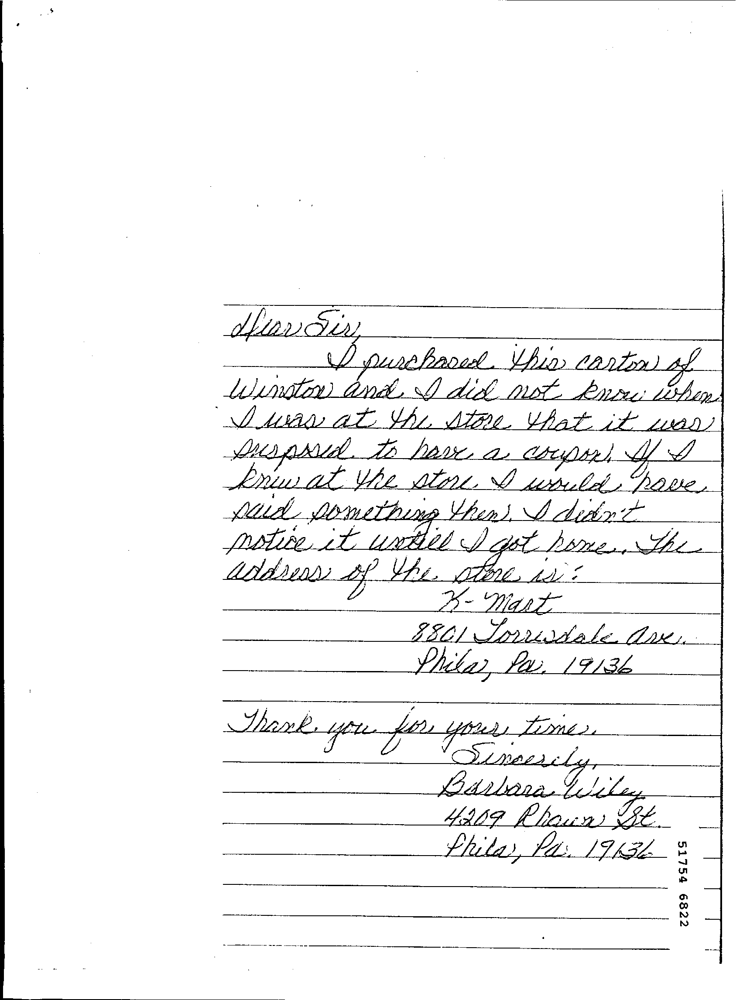 Dear Sir,
I purchased this carton of
Winston and I did not know when
I was at the store that it was
susposed to have a coupon. If I
knew at the store I would have
said something then. I didn't
notice it untill I got home. The
address of the store is:
K-Mart
8801 Torresdale Ave.
Phila, Pa. 19136
Thank you for your time.
Sincerily,
Barbara Wiley
4209 Rhawn St.
Phila, Pa. 19136
51754 6822